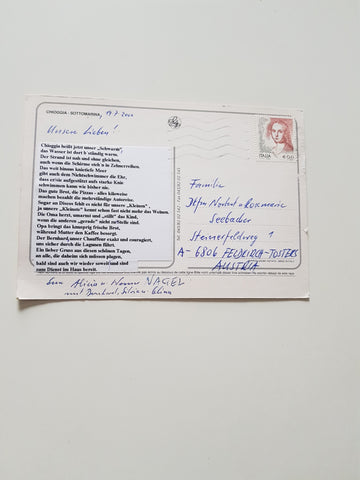 CHIOGGIA - SOTTOMARINA,
Unsere Lieben!
Chioggia heißt jetzt unser „Schwarm",
das Wasser ist dort b'ständig warm,
Der Strand ist nah und ohne gleichen,
auch wenn die Schirme steh'n in Zehnerreihen.
Das weit hinaus knietiefe Meer
gibt auch dem Nichtschwimmer die Ehr,
dass er/sie aufgestützt aufs starke Knie
schwimmen kann wie bisher nie.
Das gute Brot, die Pizzas - alles kiloweise
machen bezahlt die mehrstündige Autoreise.
Sogar an Dieses fehlt es nicht für unsere „Kleinen",
ja unsere „Kleinste" kennt schon fast nicht mehr das Weinen.
Die Oma herzt, umsorgt und „stillt" das Kind,
wenn die anderen „gerade" nicht zuRed'sind.
Opa bringt das knusprig frische Brot,
während Mutter den Kaffee besorgt.
Der Bernhard, unser Chauffeur exakt und couragiert,
uns sicher durch die Lagunen führt.
Ein lieber Gruss aus diesen schönen Tagen,
an alle, die daheim sich müssen plagen,
bald sind auch wir wieder soweit und sind
zum Dienst im Haus bereit.
Alicia u. Werner NAGEL
mit Bernhard,
ITALIA
Familie
Norbert u Rosemarie
Seebacher
Steinerfeldweg 1
A-6806 FELDKIRCH-TOSTERS
AUSTRIA